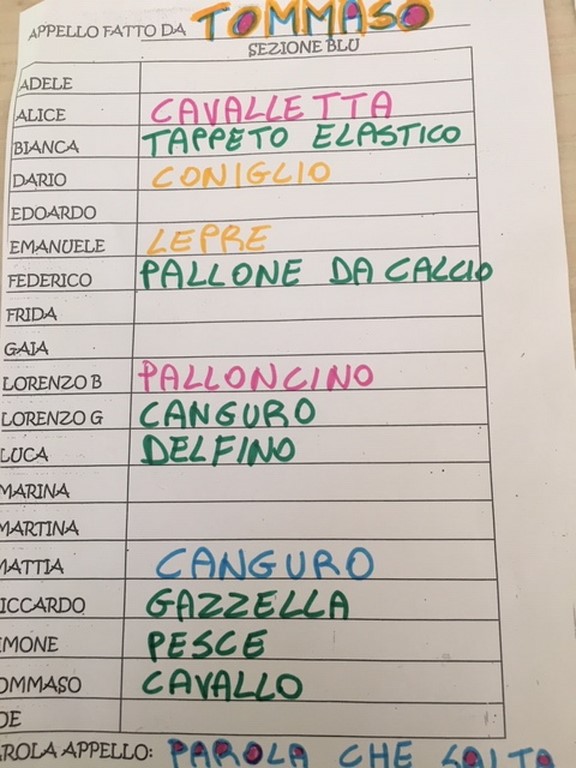 APPELLO FATTO DA TOMMASO
SEZIONE BLU
ADELE
ALICE CAVALLETTA
BIANCA TAPPETO ELASTICO
DARIO CONIGLIO
EDOARDO
EMANUELE LEPRE
FEDERICO PALLONE DA CALCIO
FRIDA
GAIA
LORENZO B PALLONCINO
LORENZO G CANGURO
LUCA DELFINO
MARINA
MARTINA
MATTIA CANGURO
ICCARDO GAZZELLA
IMONE PESCE
OMMASO CAVALLO
OE
ROLA APPELLO: PAROLA CHE SALTA